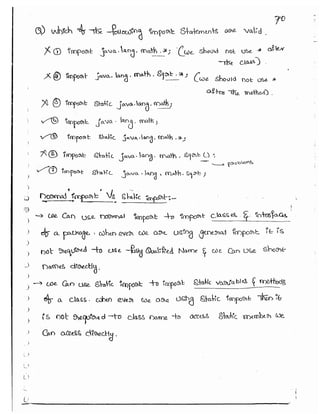 70
Q) which of the following import Statements are valid.
X ① import java.lang.math.*; (we should not use * after
the class).
X ② import java.lang.math.Sqrt.*; (we should not use *
after the method).
X ③ import Static java.lang.math;
✓④ import java.lang.math;
✓⑤ import Static java.lang.math.*;
X⑥ import Static java.lang.math.sqrt();
→ problems
✓⑦ import Static java.lang.math.sqrt;
Normal import Vs Static import:-
→ we Can use normal import to import classes & interfaces
of a package. when ever we are using general import it is
not required to use fully Qualified Name & we Can use Short
names directly.
→ we Can use Static import to import Static variables & methods
of a class. when ever we are using Static import then it
is not required to class name to access Static members we
Can access directly.